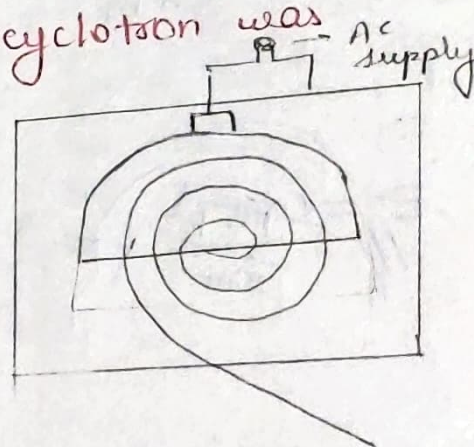 cyclotron was
AC
supply